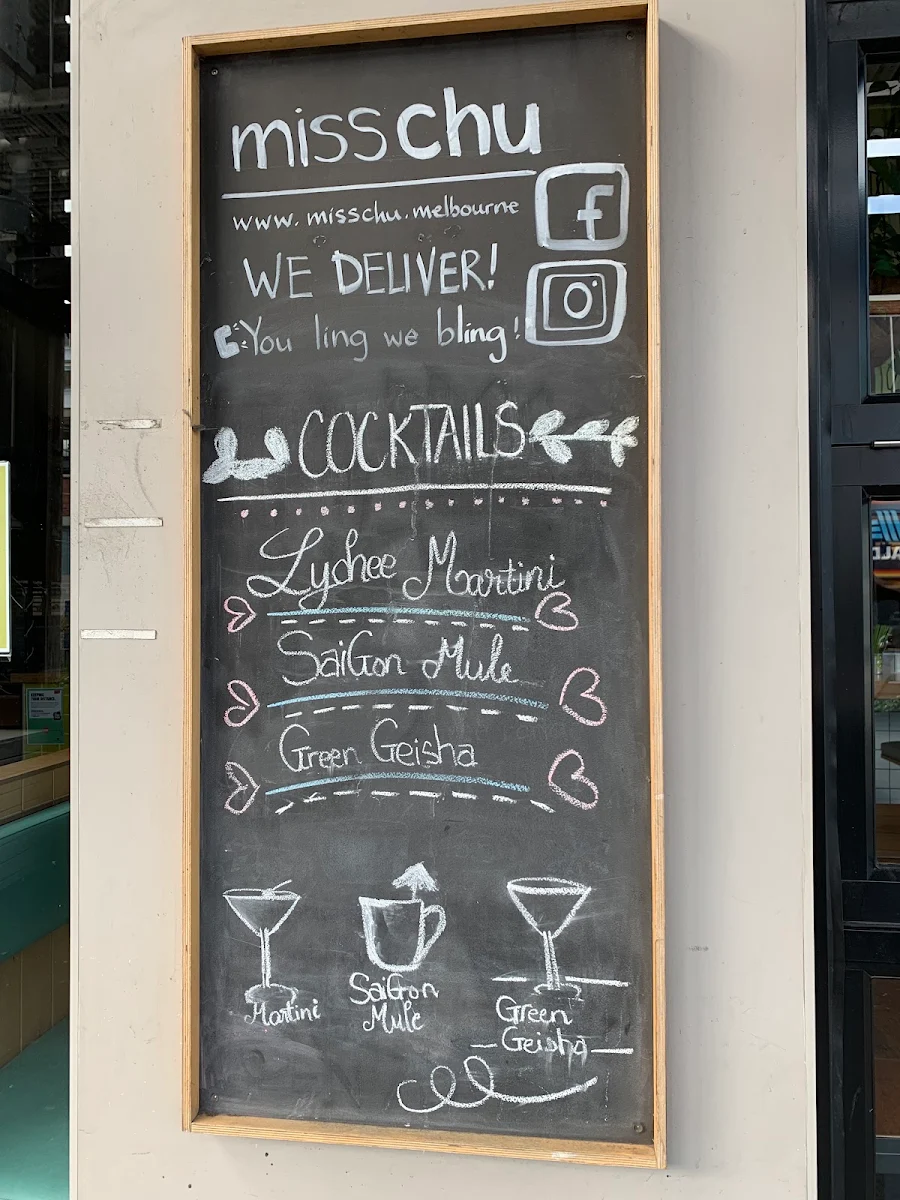 misschu
www.misschu.melbourne
WE DELIVER!
You ling we bling!
COCKTAILS
Lychee Martini
SaiGon Mule
Green Geisha
Martini
SaiGon
Mule
Green
Geisha